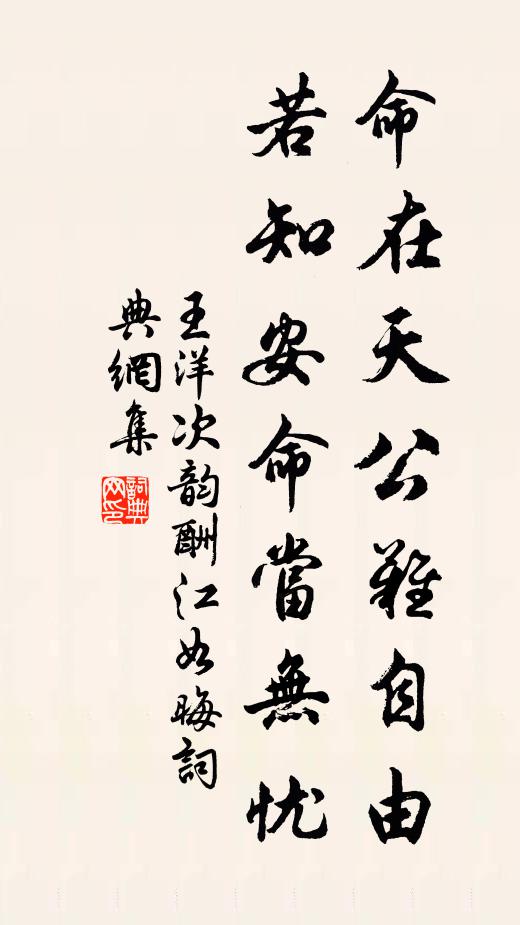 命在天公難自由
若知安命當無忧
王洋次韵酬江如晦詞
典網集
詞典网印